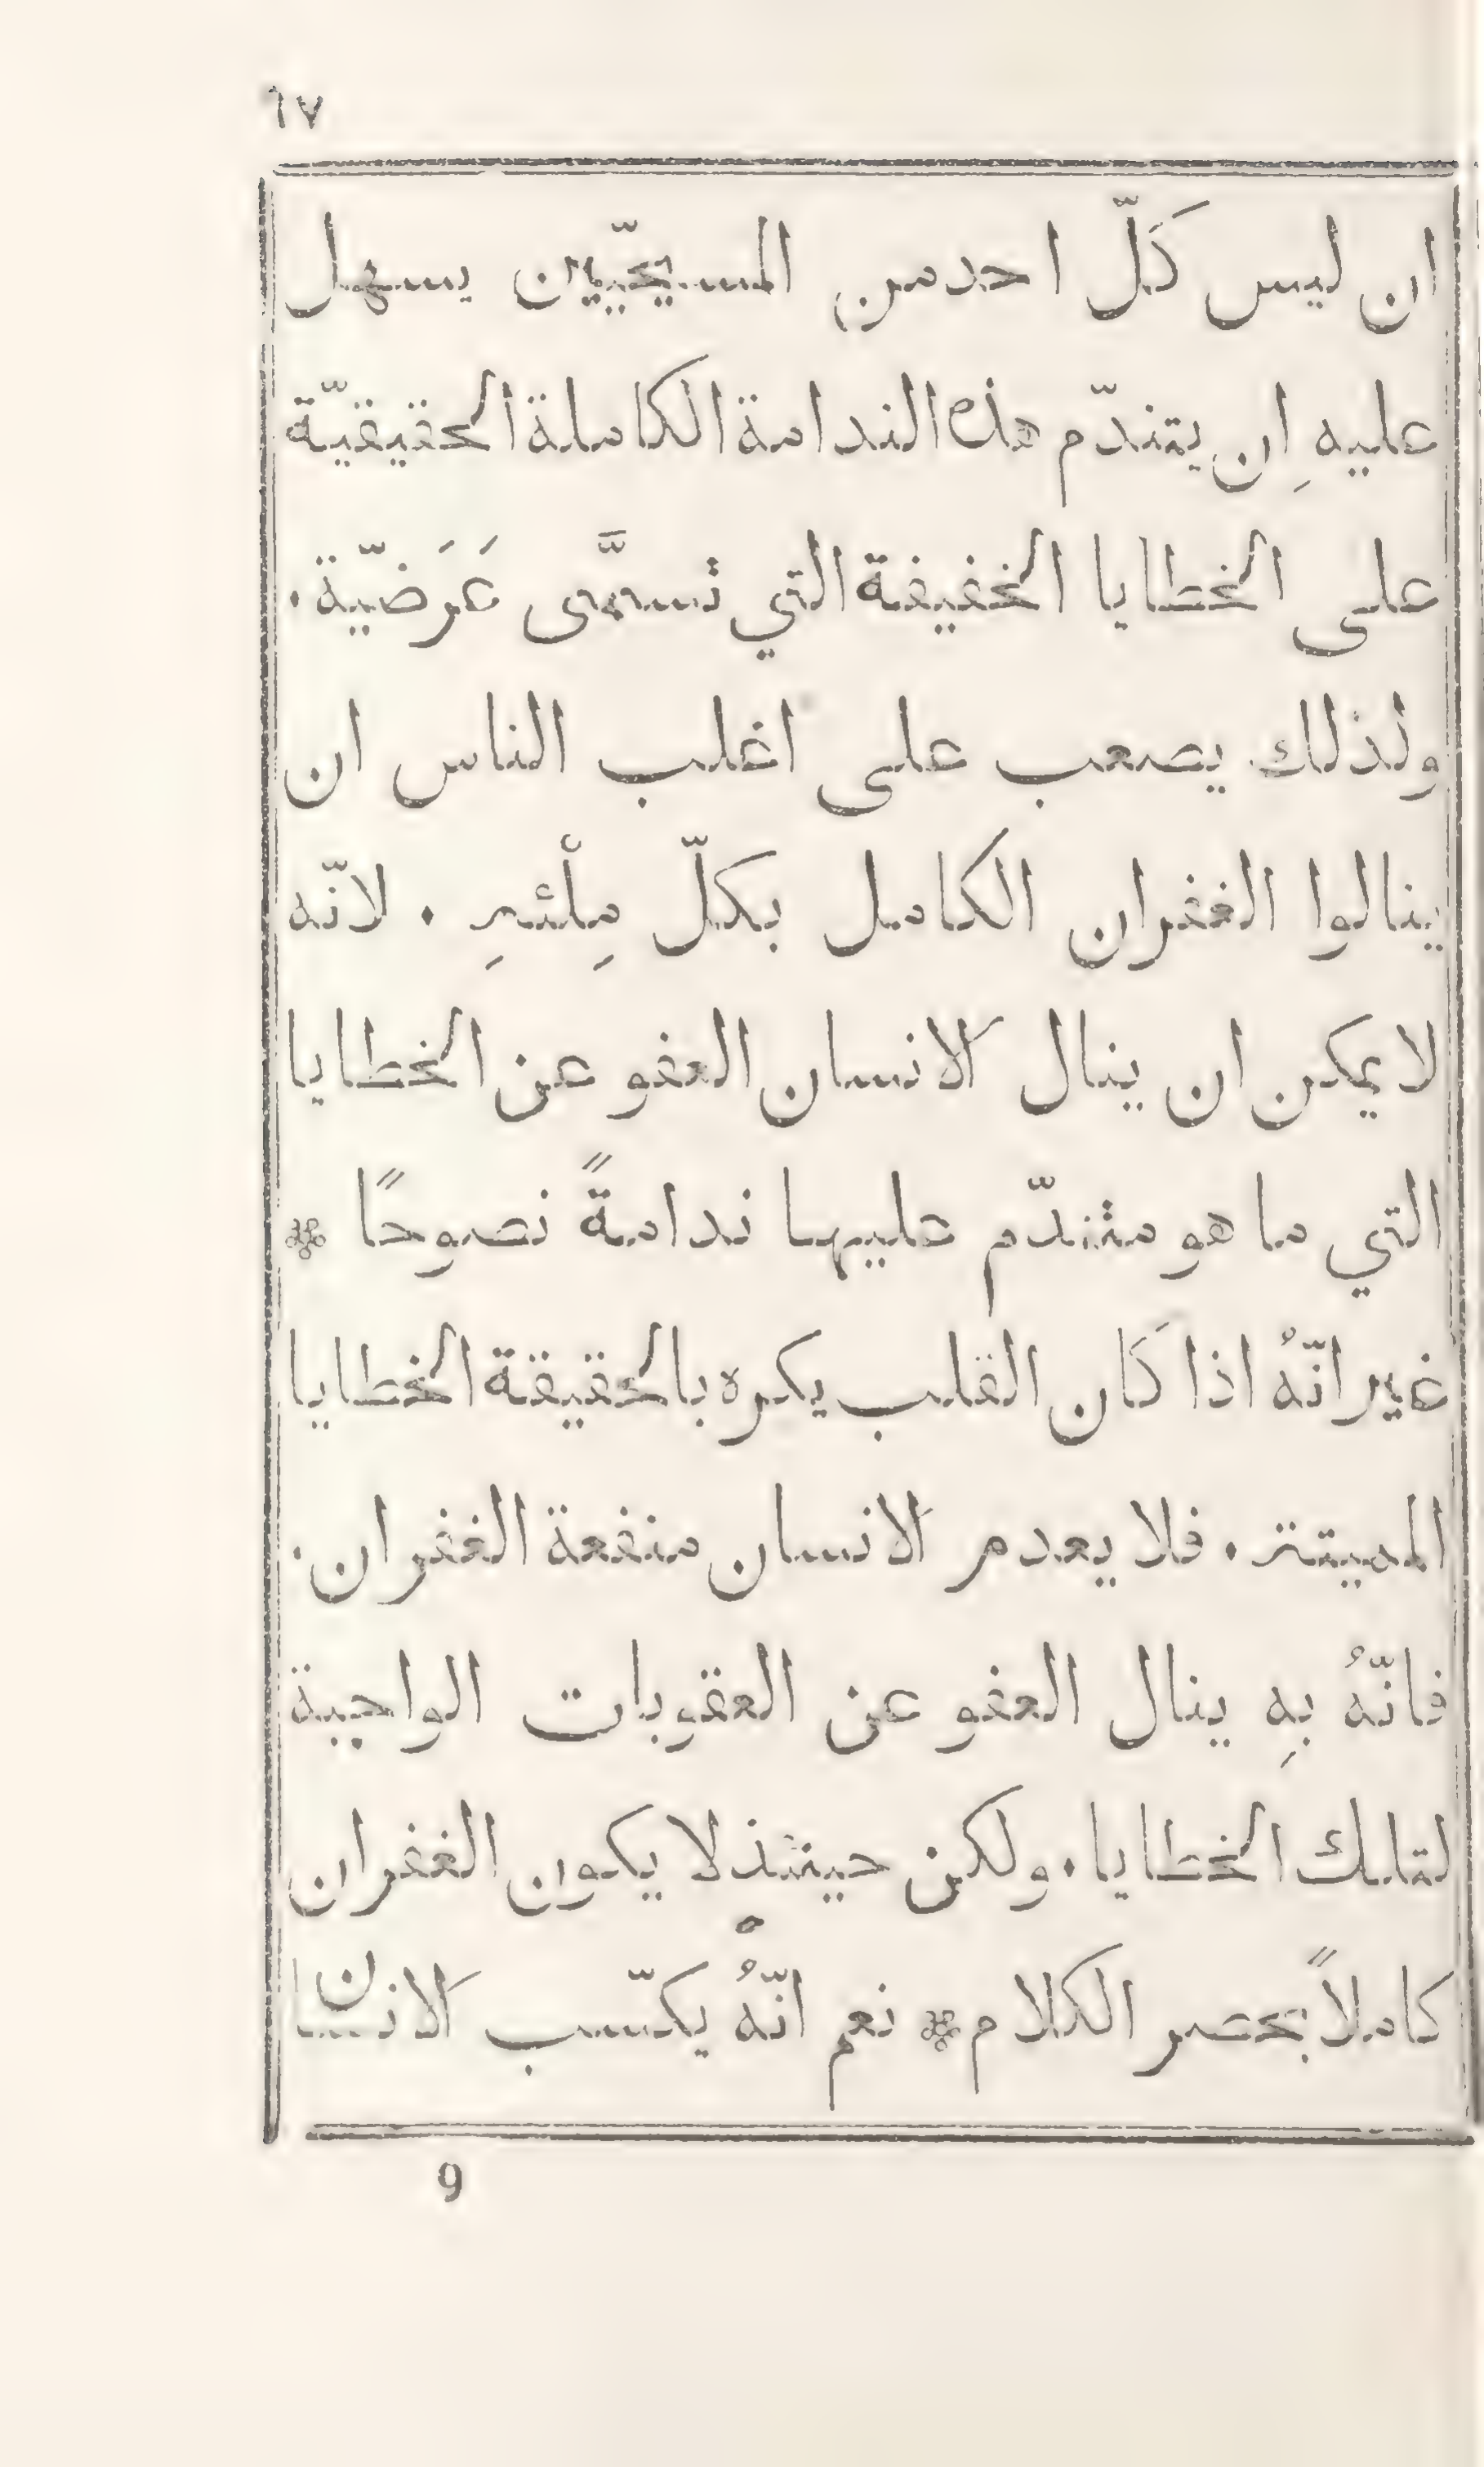 ٦٧
ان ليس كَلّ احد من المسيحيّين يسهل
عليهِ ان يتندّم هذه الندامة الكاملة الحقيقيّة
على الخطايا الخفيفة التي تسمَّى عَرَضيّة ٠
ولذلك يصعب على اغلب الناس ان
ينالوا الغفران الكامل بكلّ مِلْئهِ ٠ لانّه
لا يمكن ان ينال الانسان العفو عن الخطايا
التي ما هو متندّم عليها ندامةً نصوحًا ※
غير انّهُ اذا كَان القلب يكره بالحقيقة الخطايا
المميتة ٠ فلا يعدم الانسان منفعة الغفران ٠
فانّهُ بهِ ينال العفو عن العقوبات الواجبة
لتلك الخطايا ٠ ولكن حينئذ لا يكون الغفران
كاملاً بحصر الكلام ※ نعم انّهُ يكسّب الانسان
9